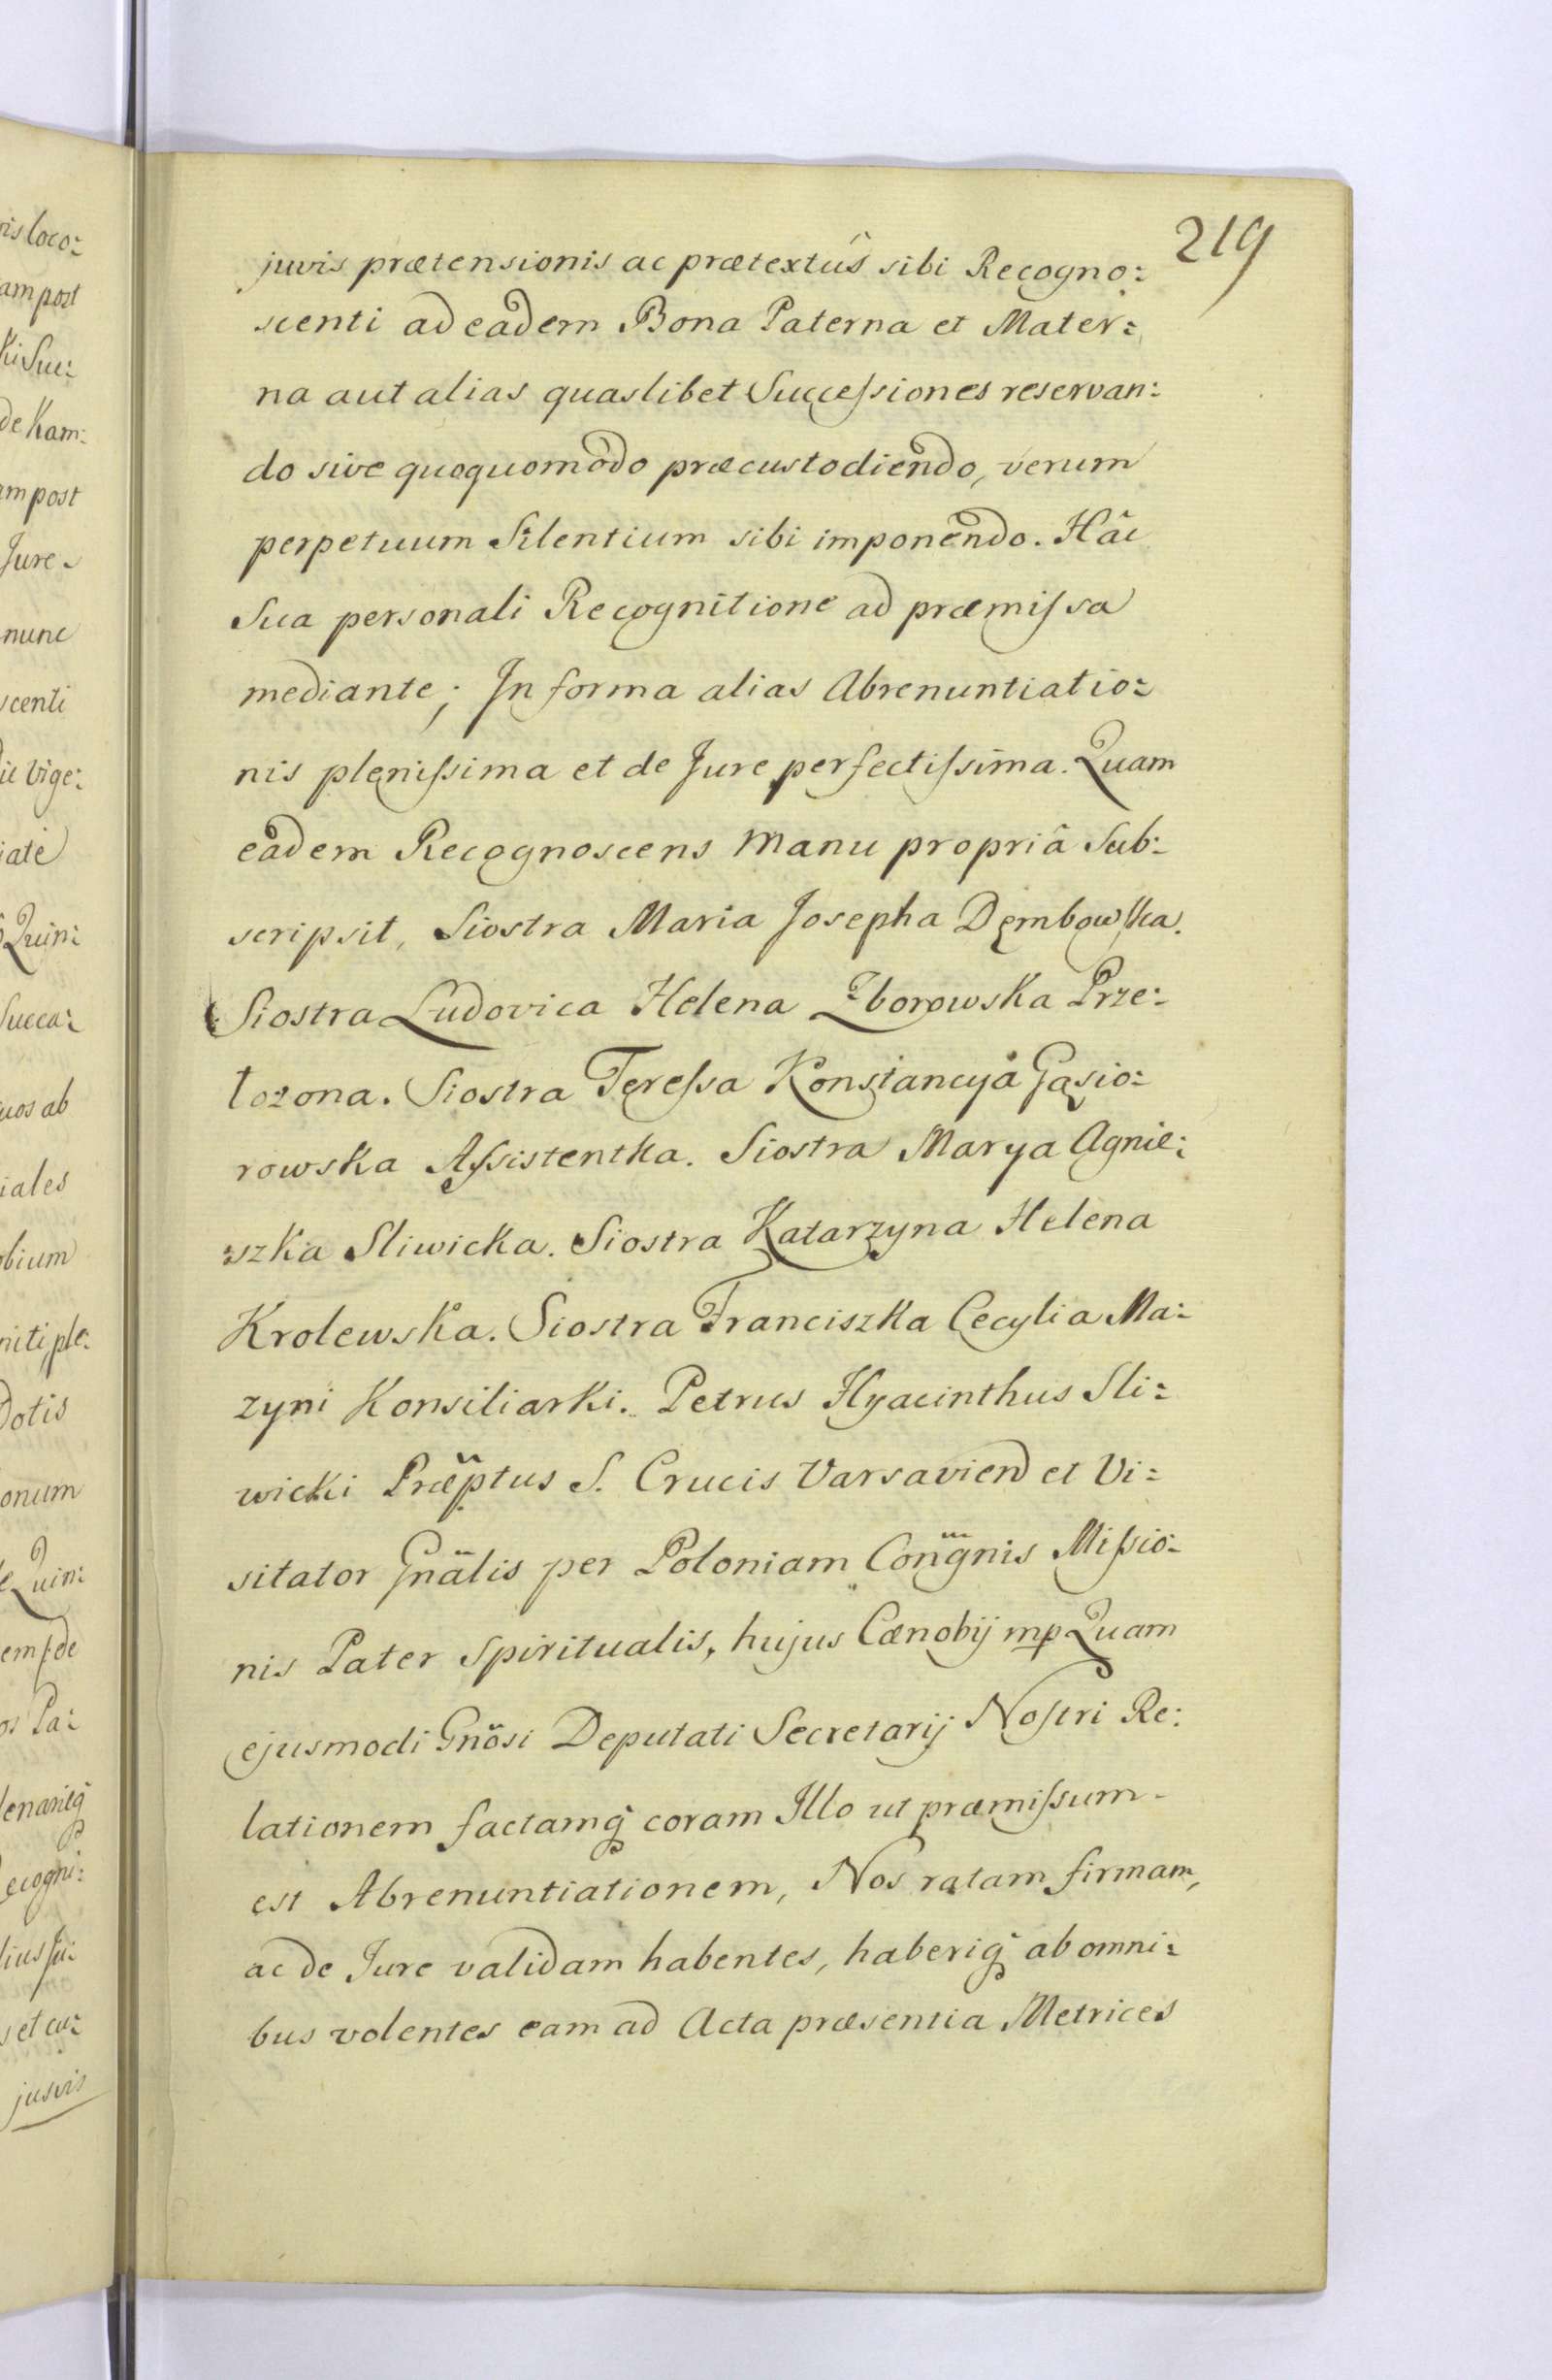 219
juris prætensionis ac prætextûs sibi Recogno:
scenti ad eadem Bona Paterna et Mater:
na aut alias quaslibet Successiones reservan:
do sive quoquomodo præcustodiendo, verum
perpetuum Silentium sibi imponendo. Hâc
Sua personali Recognitione ad præmissa
mediante; In forma alias Abrenuntiatio:
nis plenissima et de Jure perfectissima. Quam
eadem Recognoscens manu propriâ Sub:
scripsit, Siostra Maria Josepha Dembowska.
Siostra Ludovica Helena Zborowska Prze:
łozona. Siostra Teressa Konstancya Gąsio:
rowska Assistentka. Siostra Marya Agnie:
szka Sliwicka. Siostra Katarzyna Helena
Krolewska. Siostra Franciszka Cecylia Ma:
zyni Konsiliarki. Petrus Hyacinthus Sli:
wicki Præptus S. Crucis Varsavien et Vi:
sitator Gnälis per Poloniam Congnis Missio:
nis Pater Spiritualis, hujus Cœnobij mp Quam
ejusmodi Gnösi Deputati Secretarij Nostri Re:
lationem factamq̃ coram Illo ut præmissum
est Abrenuntiationem, Nos ratam firmam,
ac de Jure validam habentes, haberiq̃ ab omni:
bus volentes eam ad Acta præsentia Metrices
is loco:
am post
ki Suc:
de Kam:
am post
Jure
nunc
scenti
Vige:
Quin:
Succa:
uos ab
iales
bium
niti, ple:
Dotis
onum
Quin:
os Pa:
lenariq̃
ecogni:
et cu:
jusvis